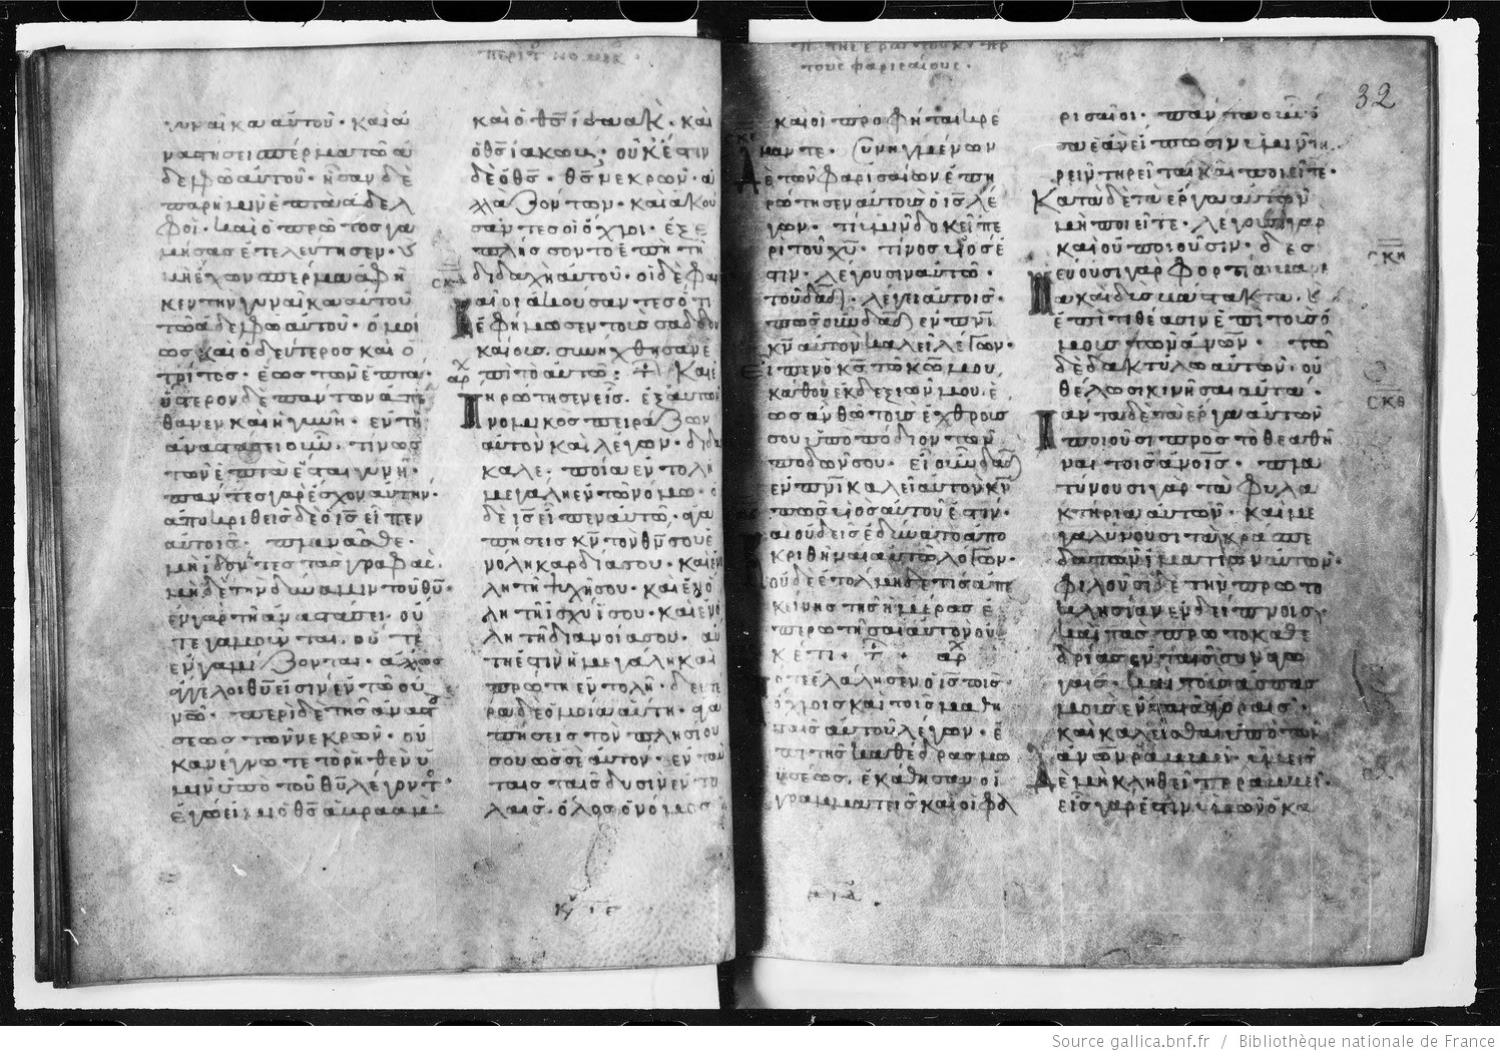 γυναῖκα αὐτοῦ· καὶ ἀ
ναστήσει σπέρμα τῶ ἀ
δελφῶ αὐτοῦ· ἦσαν δὲ
παρ' ἡμῖν ἑπτὰ ἀδελ
φοί· καὶ ὁ πρῶτος γα
μήσας ἐτελεύτησεν· καὶ
μὴ ἔχων σπέρμα ἀφῆ
κεν τὴν γυναῖκα αὐτοῦ
τῶ ἀδελφῶ αὐτοῦ· ὁμοί
ως καὶ ὁ δεύτερος καὶ ὁ
τρίτος· ἕως τῶν ἑπτά·
ὕστερον δὲ πάντων ἀπέ
θανεν καὶ ἡ γυνή· ἐν τῆ
ἀναστάσει οὖν· τίνος
τῶν ἑπτὰ ἔσται γυνή·
πάντες γὰρ ἔσχον αὐτήν·
ἀποκριθεὶς δὲ ὁ ι̅ς̅ εἶπεν
αὐτοῖς· πλανᾶσθε·
μὴ εἰδόντες τὰς γραφάς·
μηδὲ τὴν δύναμιν τοῦ θ̅υ̅·
ἐν γὰρ τῆ ἀναστάσει· οὔ
τε γαμοῦνται· οὔτε
ἐκγαμίζονται· ἀλλ' ὡς
ἄγγελοι θ̅υ̅ εἰσὶν ἐν τῶ οὐ
νῶ· περὶ δὲ τῆς ἀναστά
σεως τῶν νεκρῶν· οὐ
κ ἀνέγνωτε τὸ ῥηθὲν ὑ
μῖν ὑπὸ τοῦ θ̅υ̅ λέγοντος·
ἐγώ εἰμι ὁ θ̅ς̅ ἀβραάμ·
καὶ ὁ θ̅ς̅ ἰσαάκ· καὶ
ὁ θ̅ς̅ ἰακώβ· οὐκ ἔστιν
δὲ ὁ θ̅ς̅· θ̅ς̅ νεκρῶν· ἀ
λλὰ ζώντων· καὶ ἀκού
σαντες οἱ ὄχλοι· ἐξε
πλήσσοντο ἐπὶ τῆ
διδαχῆ αὐτοῦ· οἱ δὲ φα
ρισαῖοι ἀκούσαντες ὅτι
ἐφήμωσεν τοὺς σαδδου
καίους· συνήχθησαν ἐ
πὶ τὸ αὐτό: Καὶ ἐ
πηρώτησεν εἷς· ἐξ αὐτῶν
νομικὸς πειράζων
αὐτὸν καὶ λέγων· διδά
καλε· ποία ἐντολὴ
μεγάλη ἐν τῶ νόμω· ὁ
δὲ ι̅ς̅ εἶπεν αὐτῶ· ἀγα
πήσεις κ̅ν̅ τὸν θ̅ν̅ σου ἐ
ν ὅλη καρδία σου· καὶ ἐν ὅ
λη τῆ ψυχῆ σου· καὶ ἐν ὅ
λη τῆ ἰσχύι σου· καὶ ἐν ὅ
λη τῆ διανοία σου· αὕ
τη ἐστὶν ἡ μεγάλη καὶ
πρώτη ἐντολή· δευτέ
ρα δὲ ὁμοία αὕτη· ἀγα
πήσεις τὸν πλησίον
σου ὡς ἑαυτόν· ἐν ταύ
ταις ταῖς δυσὶν ἐντο
λαῖς· ὅλος ὁ νόμος
τοὺς φαρισαίους·
32
καὶ οἱ προφῆται κρέ
μανται. Συνηγμένων
δὲ τῶν φαρισαίων ἐπη
ρώτησεν αὐτοὺς ὁ ι̅ς̅ λέ
γων· τί ὑμῖν δοκεῖ πε
ρὶ τοῦ χ̅υ̅· τίνος υἱός ἐ
στιν· λέγουσιν αὐτῶ·
τοῦ δα̅δ̅· λέγει αὐτοῖς·
πῶς οὖν δα̅δ̅ ἐν π̅ν̅ι̅
κ̅ν̅ αὐτὸν καλεῖ λέγων·
εἶπεν ὁ κ̅ς̅ τῶ κ̅ω̅ μου,
κάθου ἐκ δεξιῶν μου· ἕ
ως ἂν θῶ τοὺς ἐχθρούς
σου ὑποπόδιον τῶν
ποδῶν σου· εἰ οὖν δα̅δ̅
ἐν π̅ν̅ι̅ καλεῖ αὐτὸν κ̅ν̅
πῶς υἱὸς αὐτοῦ ἐστιν·
καὶ οὐδεὶς ἐδύνατο ἀπο
κριθῆναι αὐτῶ λόγον·
οὐδὲ ἐτόλμησέ τις ἀπ' ἐ
κείνης τῆς ἡμέρας ἐ
περωτῆσαι αὐτὸν οὐ
κέτι·
τότε ἐλάλησεν ὁ ι̅ς̅ τοῖς
ὄχλοις καὶ τοῖς μαθη
ταῖς αὐτοῦ λέγων· ἐ
πὶ τῆς καθέδρας μω
ϋσέως, ἐκάθησαν οἱ
γραμματεῖς καὶ οἱ φα
ρισαῖοι· πάντα οὖν ὅ
σα ἐὰν εἴπωσιν ὑμῖν τη
ρεῖν τηρεῖτε καὶ ποιεῖτε·
Κατὰ δὲ τὰ ἔργα αὐτῶν
μὴ ποιεῖτε· λέγουσι γὰρ
καὶ οὐ ποιοῦσιν· δεσ
μεύουσι γὰρ φορτία βαρέ
α καὶ δυσβάστακτα· καὶ
ἐπιτιθέασιν ἐπὶ τοὺς ὤ
μους τῶν α̅ν̅ω̅ν̅· τῶ
δὲ δακτύλω αὐτῶν· οὐ
θέλωσι κινῆσαι αὐτά·
πάντα δὲ τὰ ἔργα αὐτῶν
ποιοῦσι πρὸς τὸ θεαθῆ
ναι τοῖς α̅ν̅ο̅ι̅ς̅· πλα
τύνουσι γὰρ τὰ φυλα
κτήρια αὐτῶν· καὶ με
γαλύνουσι τὰ κράσπε
δα τῶν ἱματίων αὐτῶν·
φιλοῦσι δὲ τὴν πρωτο
κλησίαν ἐν δείπνοις
καὶ τὰς πρωτοκαθε
δρίας ἐν ταῖς συναγω
γαῖς· καὶ τοὺς ἀσπασ
μοὺς ἐν ταῖς ἀγοραῖς·
καὶ καλεῖσθαι ὑπὸ τῶν
α̅ν̅ω̅ν̅ ῥαββεί· ὑμεῖς
δὲ μὴ κληθεῖτε ῥαββεί·
εἷς γάρ ἐστιν ὑμῶν ὁ κα
Source gallica.bnf.fr / Bibliothèque nationale de France